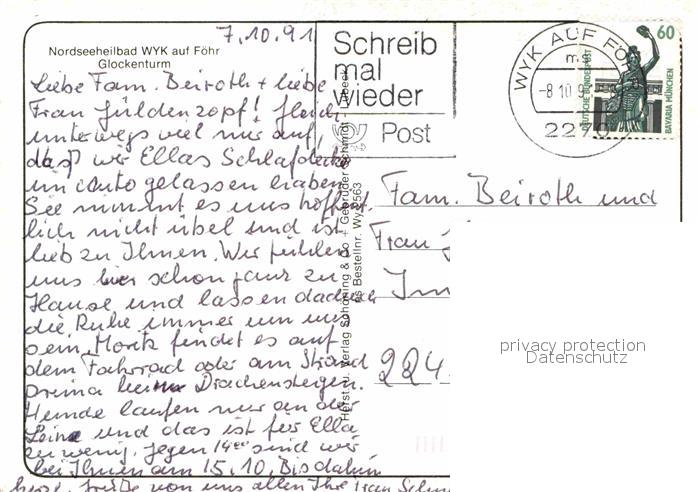 7.10.91
Nordseeheilbad WYK auf Föhr
Glockenturm
Schreib
mal
wieder
Post
WYK AUF FÖHR
-8.10.9
2270
60
DEUTSCHE BUNDESPOST
BAVARIA MÜNCHEN
Liebe Fam. Beiroth + liebe
Frau Güldenzopf! Gleich
unterwegs viel mir auf,
daß wir Ellas Schlafdecke
im Auto gelassen haben.
Sie nimmt es uns hoffent-
lich nicht übel und ist
lieb zu Ihnen. Wir fühlen
uns hier schon ganz zu
Hause und lassen dadurch
die Ruhe immer um uns
sein. Moritz findet es auf
dem Fahrrad oder am Strand
prima beim Drachensteigen.
Hunde laufen nur an der
Leine und das ist für Ella
zu wenig. Gegen 14°° sind wir
bei Ihnen am 15.10. Bis dahin
herzl. Grüße von uns allen Ihre Frau Schm
Verlag Schöning & Co + Gebrüder Schmidt - Lübeck
Bestellnr. Wy 2563
Fam. Beiroth und
Frau
Im
224
privacy protection
Datenschutz